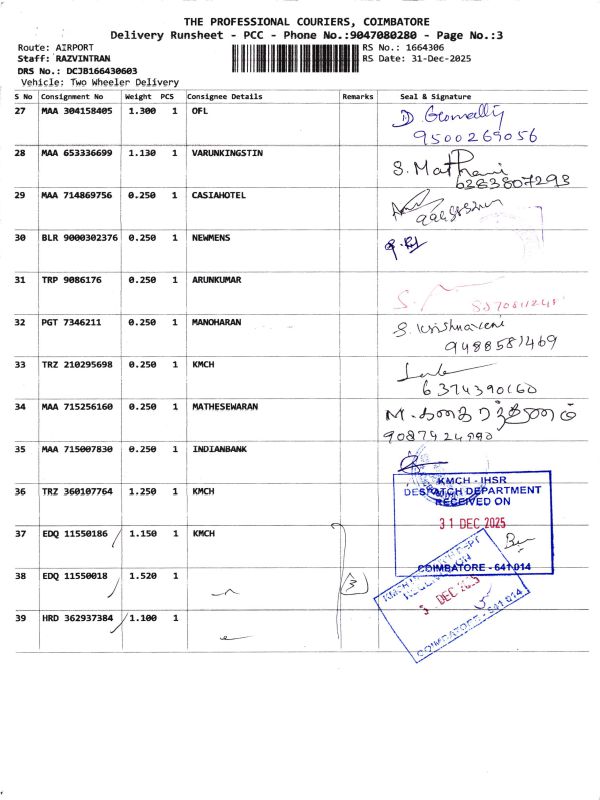 THE PROFESSIONAL COURIERS, COIMBATORE
Delivery Runsheet - PCC - Phone No.:9047080280 - Page No.:3
Route: AIRPORT RS No.: 1664306
Staff: RAZVINTRAN RS Date: 31-Dec-2025
DRS No.: DCJB166430603
Vehicle: Two Wheeler Delivery
S No Consignment No Weight PCS Consignee Details Remarks Seal & Signature
27 MAA 304158405 1.300 1 OFL
9500269056
28 MAA 653336699 1.130 1 VARUNKINGSTIN
6283807293
29 MAA 714869756 0.250 1 CASIAHOTEL
30 BLR 9000302376 0.250 1 NEWMENS
31 TRP 9086176 0.250 1 ARUNKUMAR
32 PGT 7346211 0.250 1 MANOHARAN S. Krishnaveni
9488581469
33 TRZ 210295698 0.250 1 KMCH
6374390160
34 MAA 715256160 0.250 1 MATHESEWARAN
35 MAA 715007830 0.250 1 INDIANBANK
36 TRZ 360107764 1.250 1 KMCH
KMCH - IHSR
DESPATCH DEPARTMENT
RECEIVED ON
31 DEC 2025
COIMBATORE - 641 014
37 EDQ 11550186 1.150 1 KMCH
38 EDQ 11550018 1.520 1 3
39 HRD 362937384 1.100 1
DEC 2025
COIMBATORE - 641 014